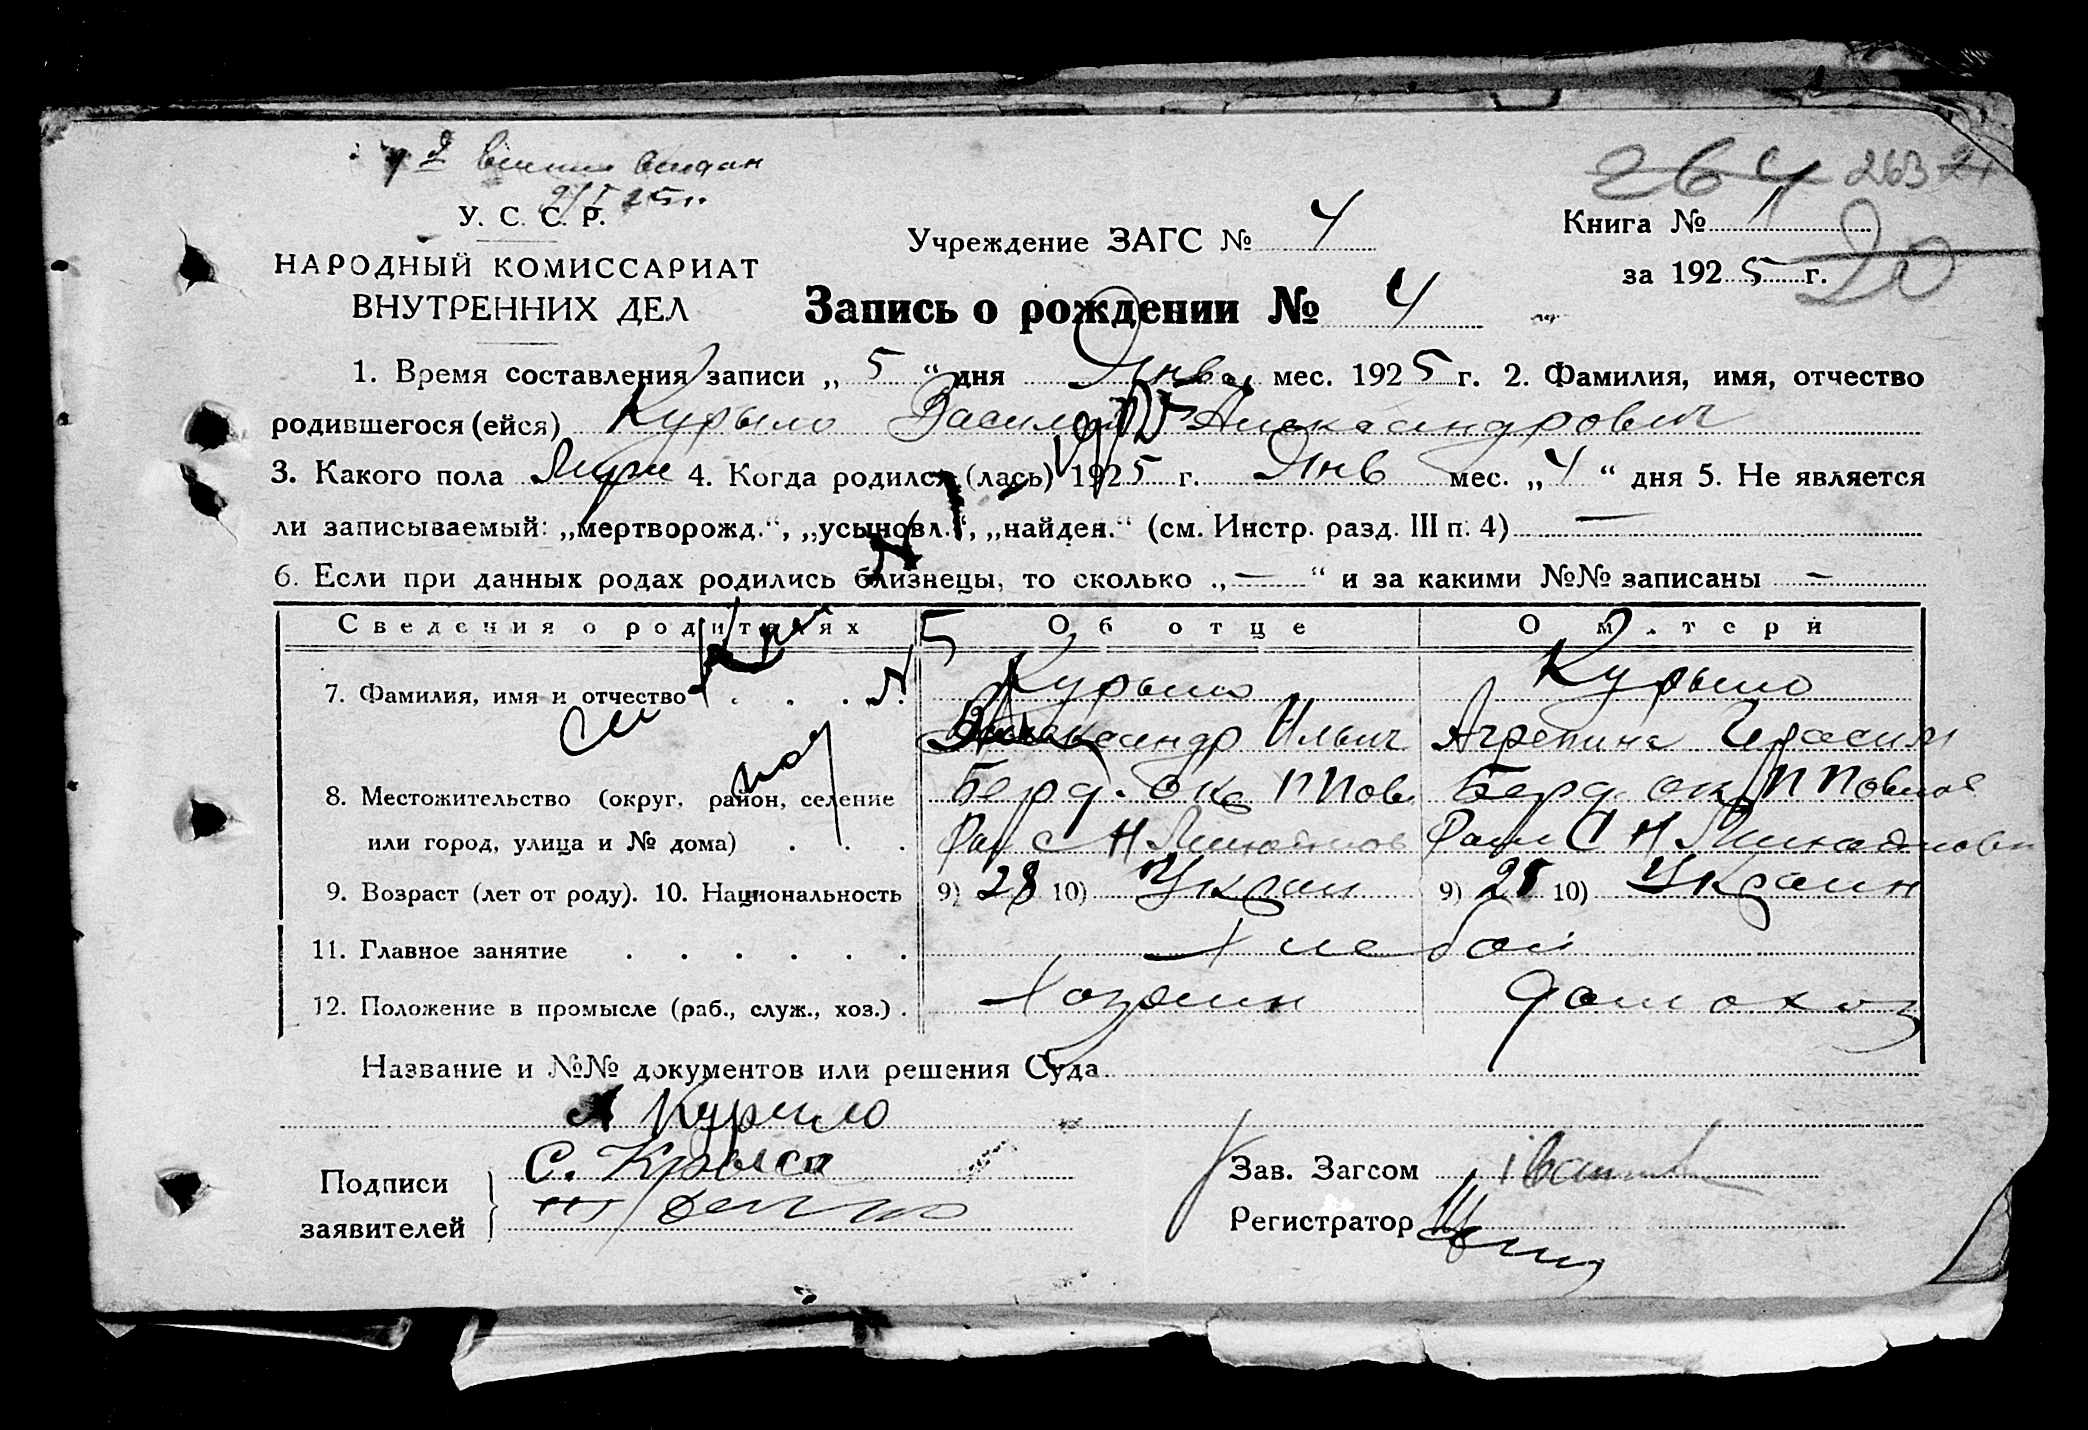 У. С. С. Р.
НАРОДНЫЙ КОМИССАРИАТ
ВНУТРЕННИХ ДЕЛ
Учреждение ЗАГС № 4
264 263
Книга № 1
за 1925 г.
20
Запись о рождении № 4
1. Время составления записи „ 5 “ дня Янв. мес. 1925 г. 2. Фамилия, имя, отчество
родившегося (ейся) Курыло Василий Александрович
3. Какого пола Муж 4. Когда родился (лась) 1925 г. Янв мес. „ 4 “ дня 5. Не является
ли записываемый: „мертворожд.“, „усыновл.“, „найден.“ (см. Инстр. разд. III п. 4) —
6. Если при данных родах родились близнецы, то сколько „ — “ и за какими №№ записаны —
Сведения о родителях Об отце О матери
7. Фамилия, имя и отчество . . . . Курыло Курыло
Александр Ильич Агрепина Герасим
8. Местожительство (округ, район, селение Берд. ок
или город, улица и № дома) . . . С Н
9. Возраст (лет от роду). 10. Национальность 9) 28 10) Украин 9) 25 10) Украин
11. Главное занятие . . . . . . Хлебоп
12. Положение в промысле (раб., служ., хоз.) . Хозяин домохоз
Название и №№ документов или решения Суда
А Курило
Подписи заявителей С. Крыса
Зав. Загсом
Регистратор